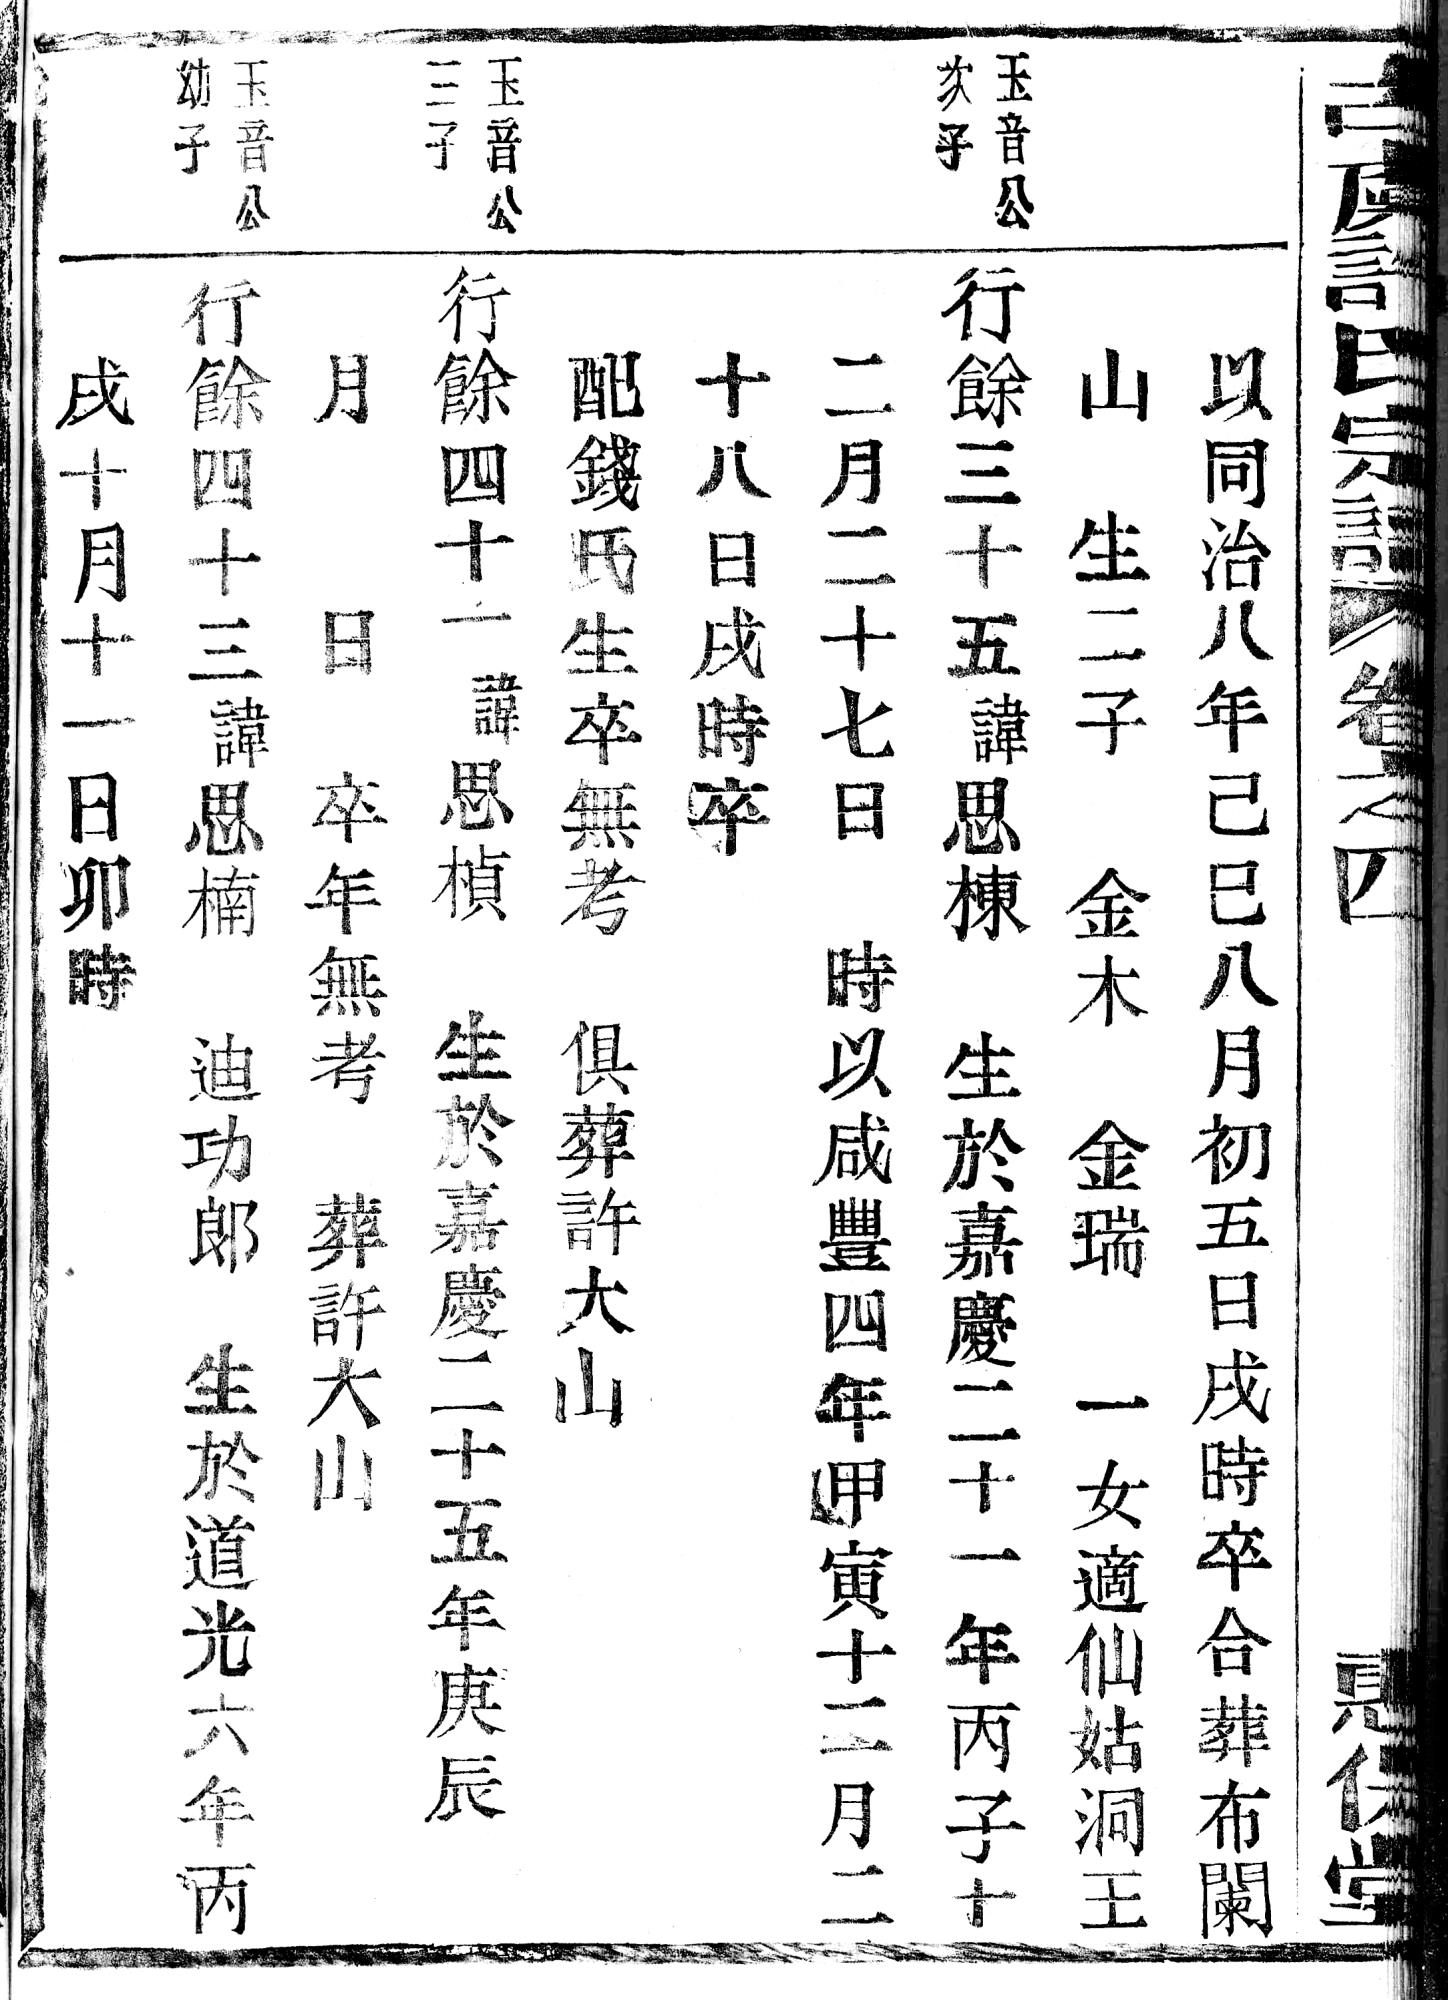 宗譜卷之四
以同治八年己巳八月初五日戌時卒合葬布闌
山 生二子 金木 金瑞 一女適仙姑洞王
玉音公
次子
行餘三十五諱思棟 生於嘉慶二十一年丙子十
二月二十七日 時以咸豐四年甲寅十二月二
十八日戌時卒
配錢氏生卒無考 俱葬許大山
玉音公
三子
行餘四十一諱思楨 生於嘉慶二十五年庚辰
月 日 卒年無考 葬許大山
玉音公
幼子
行餘四十三諱思楠 迪功郎 生於道光六年丙
戌十月十一日卯時